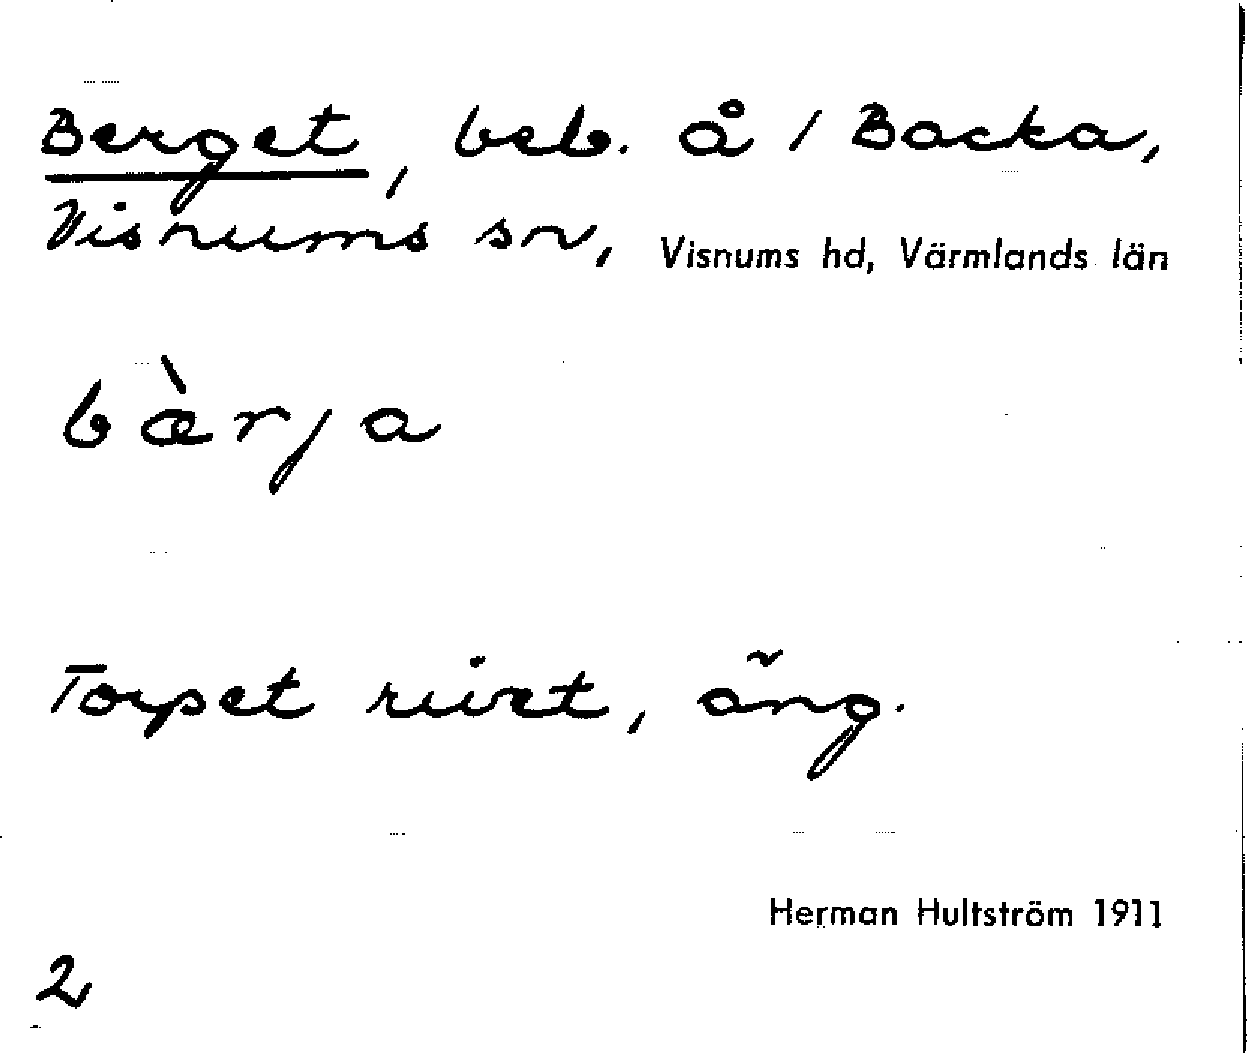 Berget, beb. å 1 Backa,
Visnums sn, Visnums hd, Värmlands län
bæ̀rja
Torpet rivet, äng.
Herman Hultström 1911
2